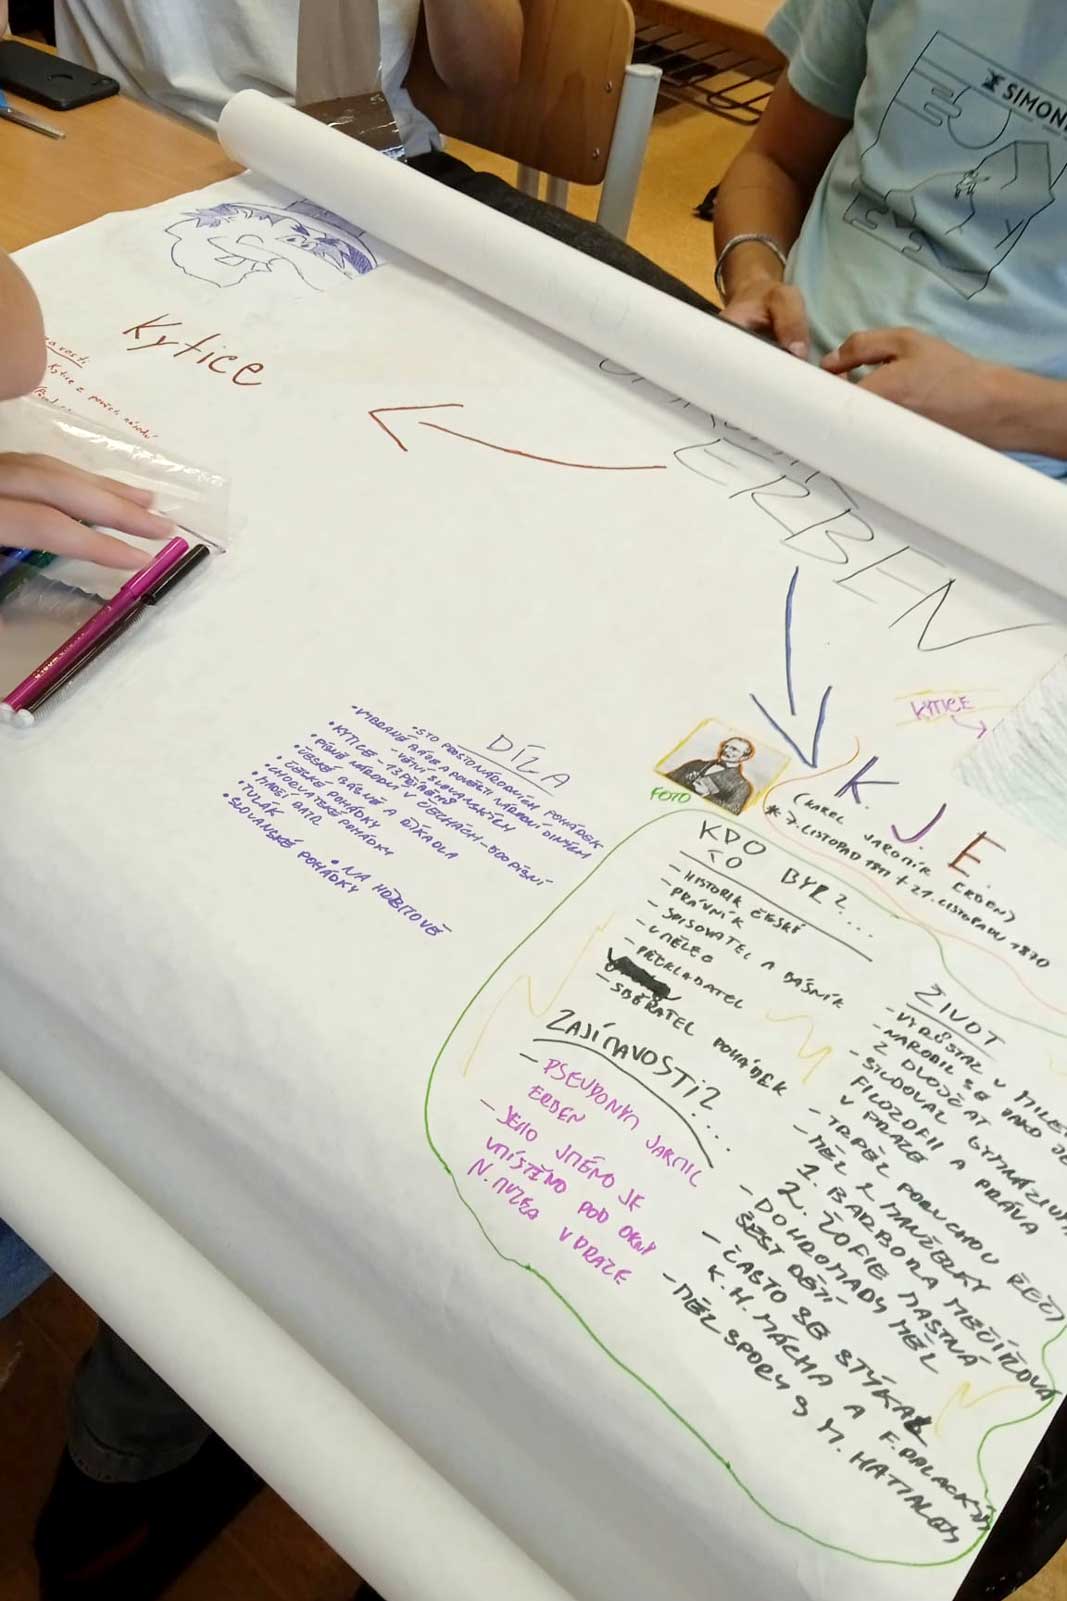 SIMON
Kytice
Kytice z pověstí národních
ERBEN
KYTICE
DÍLA
• STO PROSTONÁRODNÍCH POHÁDEK
• VYBRANÉ BÁJE A POVĚSTI NÁRODNÍ JINÝCH
VĚTVÍ SLOVANSKÝCH
• KYTICE - 13 BÁSNÍ
• PÍSNĚ NÁRODNÍ V ČECHÁCH - 500 PÍSNÍ
• ČESKÉ BÁSNĚ A ŘÍKADLA
• ČESKÉ POHÁDKY
• CHORVATSKÉ POHÁDKY
• TULÁK
• NA HŘBITOVĚ
• SLOVANSKÉ POHÁDKY
FOTO
K. J. E.
(KAREL JAROMÍR ERBEN)
* 7. LISTOPAD 1811 + 21. LISTOPADU 1870
KDO
CO BYL?...
- HISTORIK ČESKÝ
- PRÁVNÍK
- SPISOVATEL A BÁSNÍK
- UMĚLEC
- PŘEKLADATEL
- SBĚRATEL POHÁDEK
ZAJÍMAVOSTI?...
- PSEUDONYM JARMIL
ERBEN
- JEHO JMÉNO JE
UMÍSTĚNO POD OKNY
N. MUZEA V PRAZE
ŽIVOT
- VYRŮSTAL V MILE
- NARODIL SE JAKO JE
Z DVOJČAT
- STUDOVAL GYMNÁZIUM
FILOZOFII A PRÁVA
V PRAZE
- TRPĚL PORUCHOU ŘEČI
- MĚL 2 MANŽELKY
1. BARBORA MEČÍŘOVÁ
2. ŽOFIE MASTNÁ
- DOHROMADY MĚL
ŠEST DĚTÍ
- ČASTO SE STÝKAL
K. H. MÁCHA A F. PALACKÝM
- MĚL SPORY S M. HATTALOU